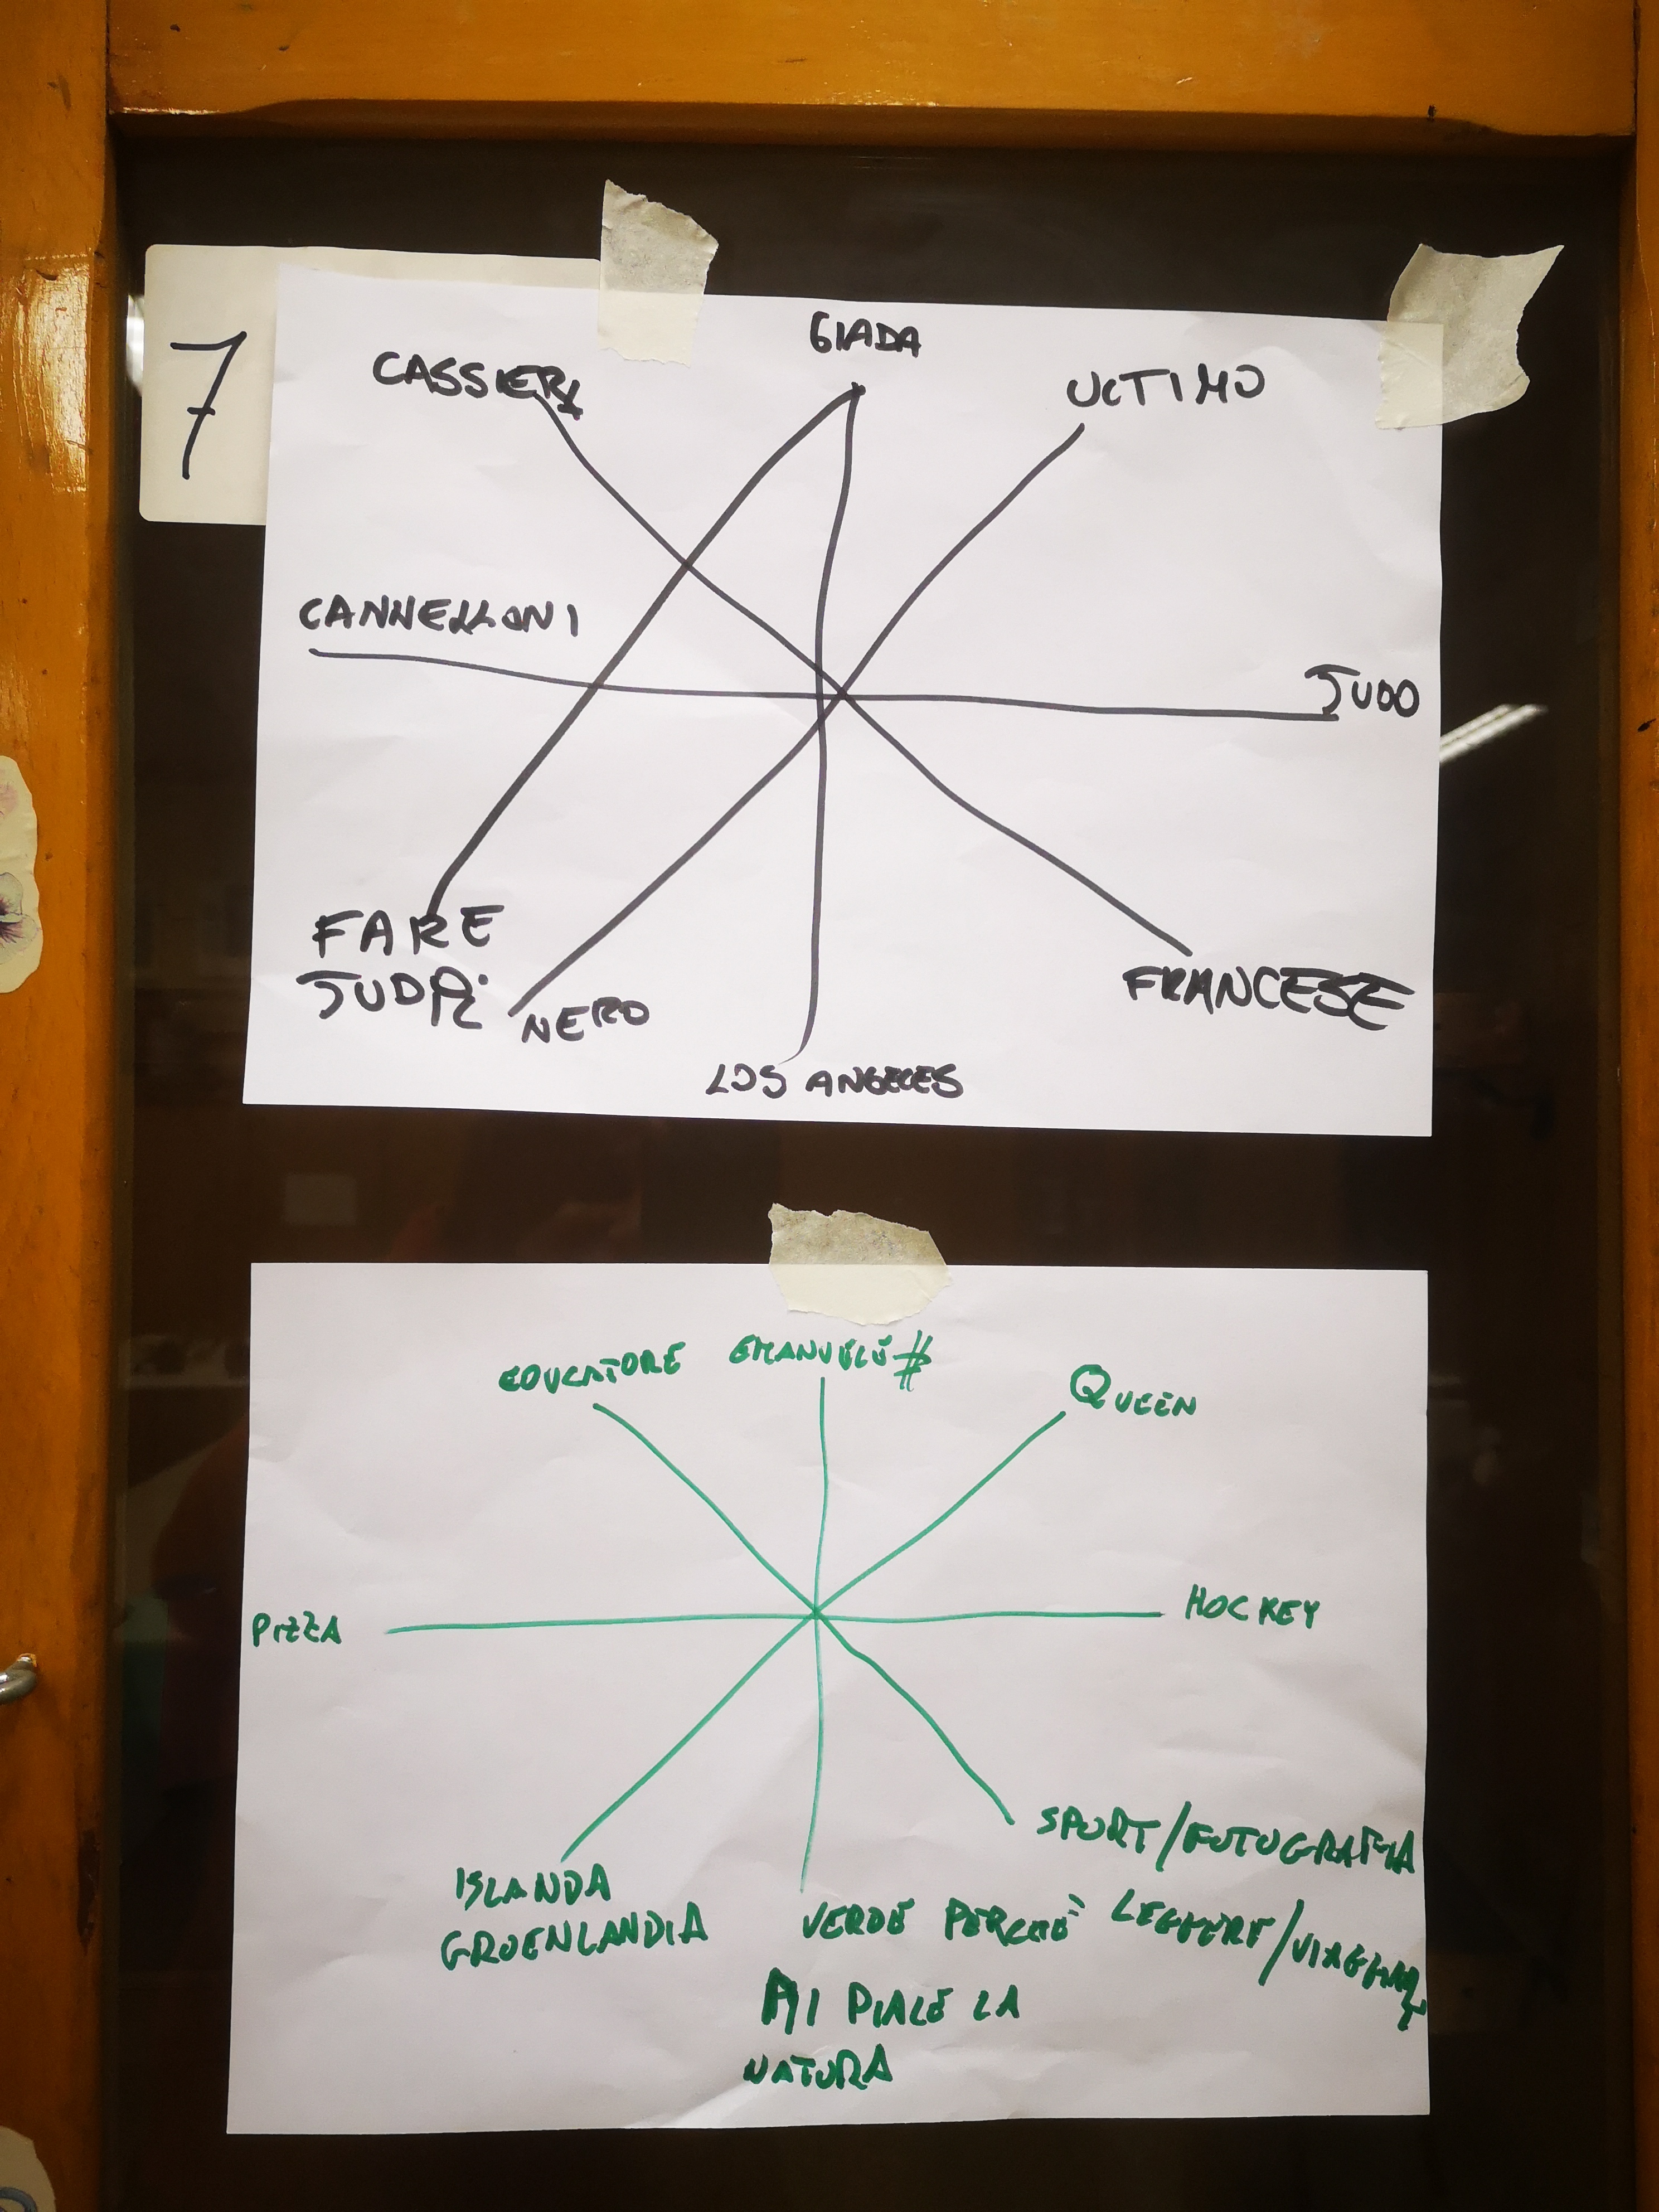 7
GIADA
CASSIERA
ULTIMO
CANNELLONI
JUDO
FARE
JUDO
NERO
FRANCESE
LOS ANGELES
EDUCATORE
EMANUELE #
QUEEN
PIZZA
HOCKEY
SPORT/FOTOGRAFIA
LEGGERE/VIAGGIARE
ISLANDA
GROENLANDIA
VERDE PERCHÈ
MI PIACE LA
NATURA